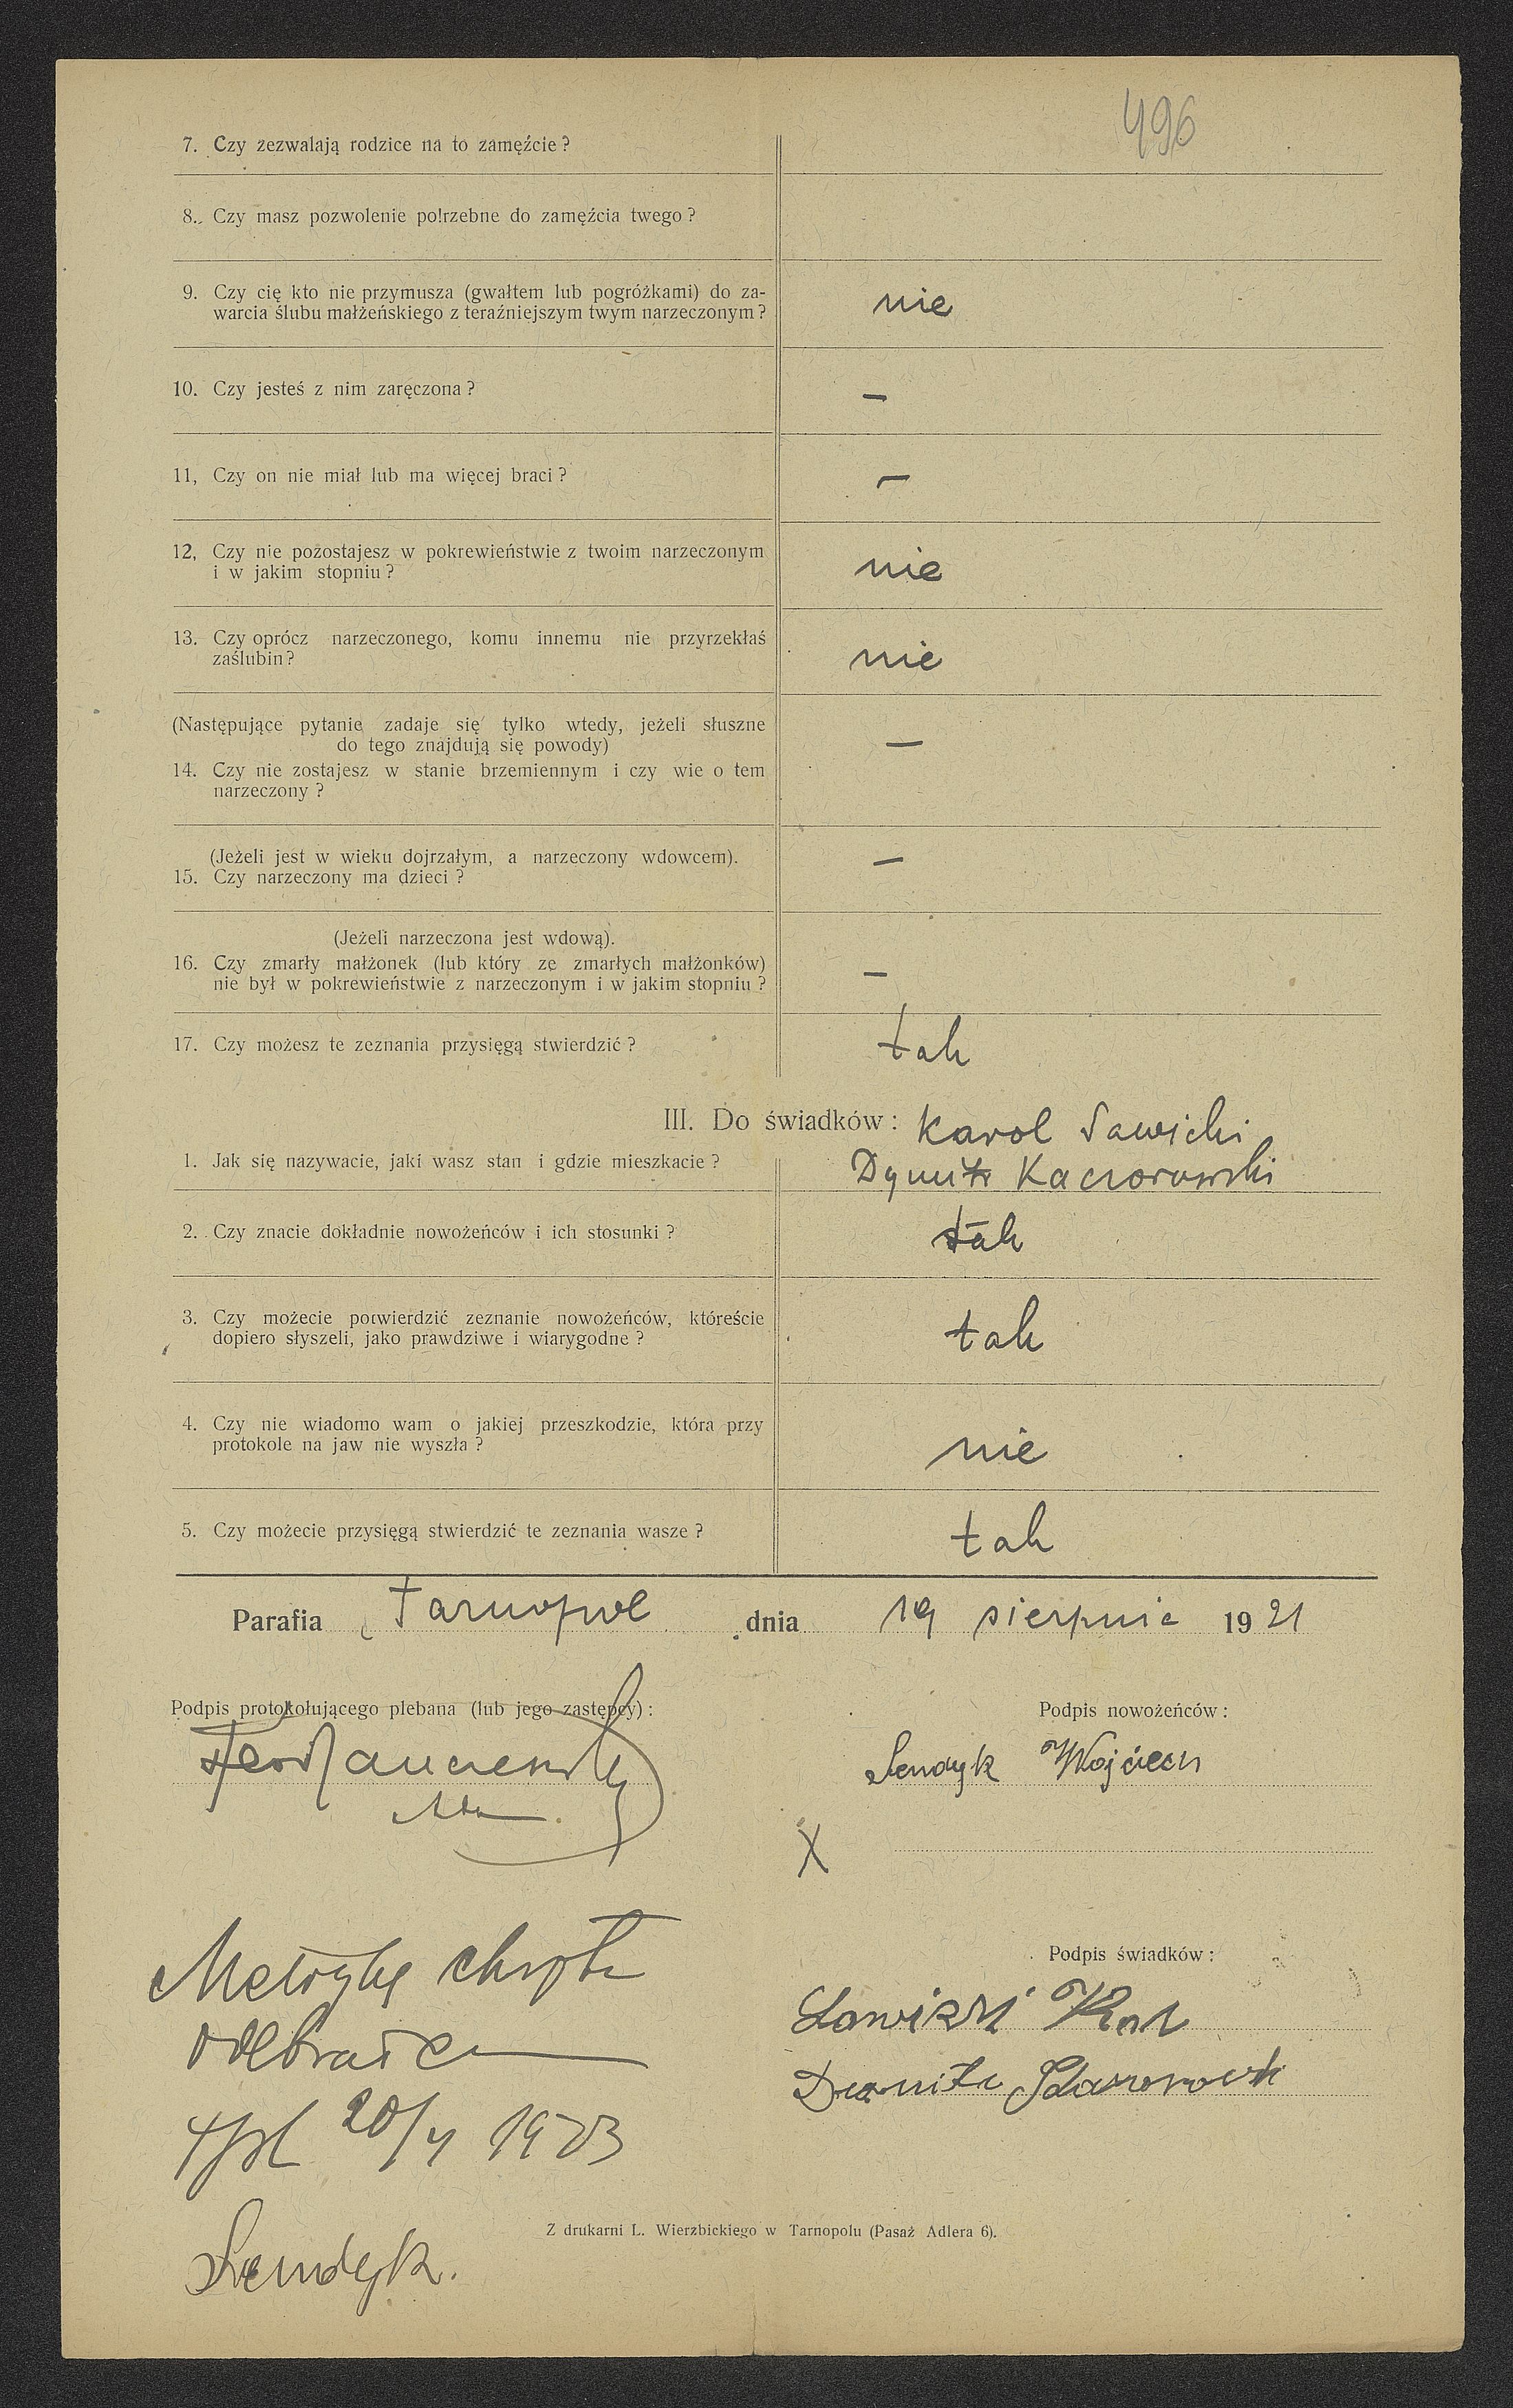 496
7. Czy zezwalają rodzice na to zamęźcie ?
8. Czy masz pozwolenie potrzebne do zamęźcia twego ?
9. Czy cię kto nie przymusza (gwałtem lub pogróżkami) do za-
warcia ślubu małżeńskiego z teraźniejszym twym narzeczonym ?
nie
10. Czy jesteś z nim zaręczona ?
—
11, Czy on nie miał lub ma więcej braci ?
—
12, Czy nie pozostajesz w pokrewieństwie z twoim narzeczonym
i w jakim stopniu ?
nie
13. Czy oprócz narzeczonego, komu innemu nie przyrzekłaś
zaślubin ?
nie
(Następujące pytanie zadaje się tylko wtedy, jeżeli słuszne
do tego znajdują się powody)
—
14. Czy nie zostajesz w stanie brzemiennym i czy wie o tem
narzeczony ?
(Jeżeli jest w wieku dojrzałym, a narzeczony wdowcem).
—
15. Czy narzeczony ma dzieci ?
(Jeżeli narzeczona jest wdową).
16. Czy zmarły małżonek (lub który ze zmarłych małżonków)
nie był w pokrewieństwie z narzeczonym i w jakim stopniu ?
—
17. Czy możesz te zeznania przysięgą stwierdzić ?
tak
III. Do świadków : Karol Sawicki
1. Jak się nazywacie, jaki wasz stan i gdzie mieszkacie ?
Dymitr Kaczorowski
2. Czy znacie dokładnie nowożeńców i ich stosunki ?
tak
3. Czy możecie potwierdzić zeznanie nowożeńców, któreście
dopiero słyszeli, jako prawdziwe i wiarygodne ?
tak
4. Czy nie wiadomo wam o jakiej przeszkodzie, która przy
protokole na jaw nie wyszła ?
nie
5. Czy możecie przysięgą stwierdzić te zeznania wasze ?
tak
Parafia Tarnopol dnia 19 sierpnia 1921
Podpis protokołującego plebana (lub jego zastępcy) :
Podpis nowożeńców :
Sendyk Wojciech
X
Metrykę chrztu
odebrałem
Tpl 20/4 1923
Sendyk.
Podpis świadków :
Sawizki
Z drukarni L. Wierzbickiego w Tarnopolu (Pasaż Adlera 6).